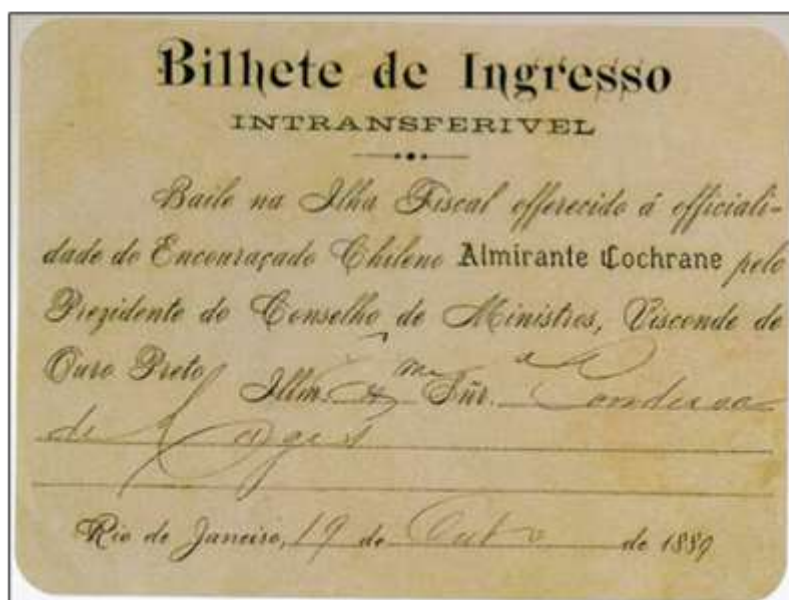 Bilhete de Ingresso
INTRANSFERIVEL
Baile na Ilha Fiscal offerecido á officiali-
dade do Encouraçado Chileno Almirante Cochrane pelo
Prezidente do Conselho de Ministros, Visconde de
Ouro Preto Illm. Snr.ª Condessa
de Lages
Rio de Janeiro, 19 de Outo de 1889